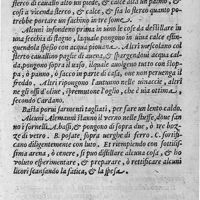 sterco di cauallo alto un piede, & calce alta un palmo, &
così a uicenda sterco, & calce, & sia lo sterco quanto po-
trebbe portare un fachino in tre some.
Alcuni infondeno prima in uino le cose da destillare in
una secchia di stagno, laquale pongono in una calce estin-
guendola spesso con acqua piouana. Altri uosselano con
sterco cauallino paglie di auena, & spargendoui acqua cal-
da, pongono sopra il uaso, ilquale auolgono tutto con stop-
pa, o panno, accio lo parte di casa, one non peruenga il
freddo. Altri ripongono l'antimonio nelle uinaccie, & altri
ne gli ossi d'oliue, ispremutone l'oglio, che è una ottima...,
secondo Cardano.
Basta porui sarmenti tagliati, per fare un lento caldo.
Alcuni Alemanni stanno il uerno nelle stuffe, doue fan-
no i fornelli A. bassi, & pongono di sopra due, ò tre boz-
ze di uetro. B. posate, sopra uerghe di ferro. C. fortifi-
cano diligentemente con luto. Et riempiendo con sottil-
issima arena, ò cenere, si può distillare alcuna cosa, & ho
uoluto esperimentare, & preparare, ò rettificare alcuni
licori scansando la fatica, & la spesa.